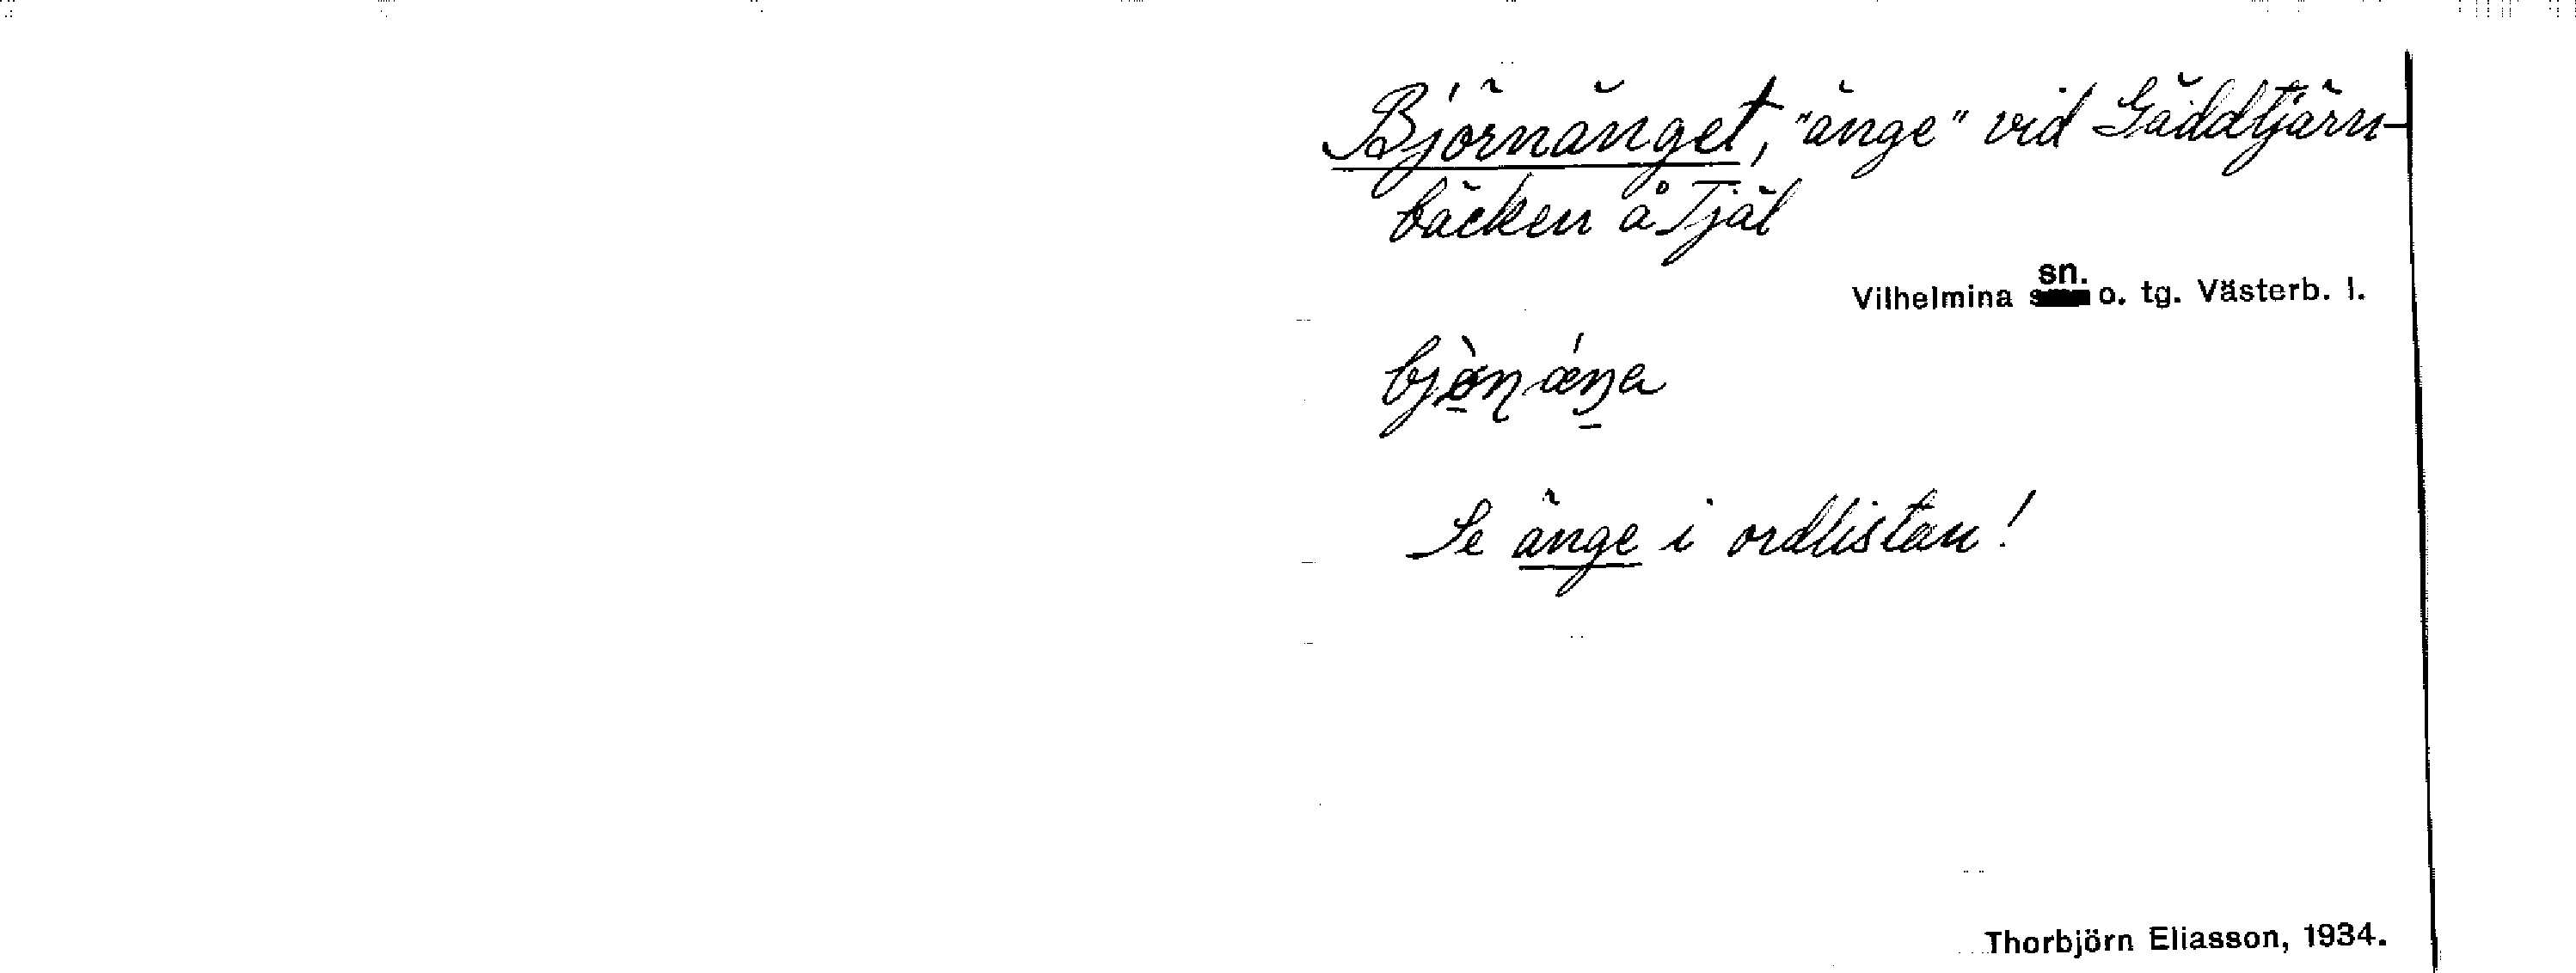 Björnänget, "änge" vid Gäddtjärn-
bäcken å Tjäl
Vilhelmina sn. o. tg. Västerb. l.
bjö̀ṉǽŋa
Se änge i ordlistan!
Thorbjörn Eliasson, 1934.